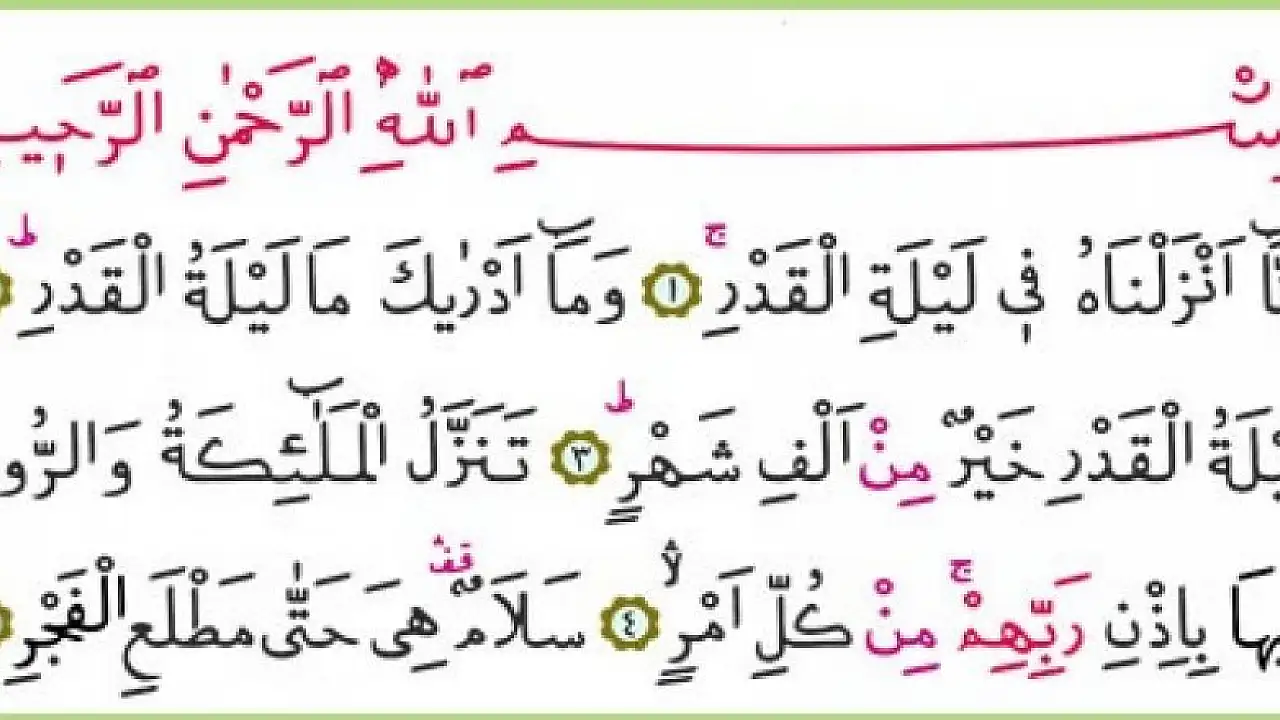 مِ اللّٰهِ الرَّحْمٰنِ الرَّحٖي
اَنْزَلْنَاهُ فٖي لَيْلَةِ الْقَدْرِۚ ﴿١﴾ وَمَٓا اَدْرٰيكَ مَا لَيْلَةُ الْقَدْرِۜ
الْقَدْرِ خَيْرٌ مِنْ اَلْفِ شَهْرٍۜ ﴿٣﴾ تَنَزَّلُ الْمَلٰٓئِكَةُ وَالرُّو
بِاِذْنِ رَبِّهِمْۚ مِنْ كُلِّ اَمْرٍۙ ﴿٤﴾ سَلَامٌ۠ هِيَ حَتّٰى مَطْلَعِ الْفَجْرِ